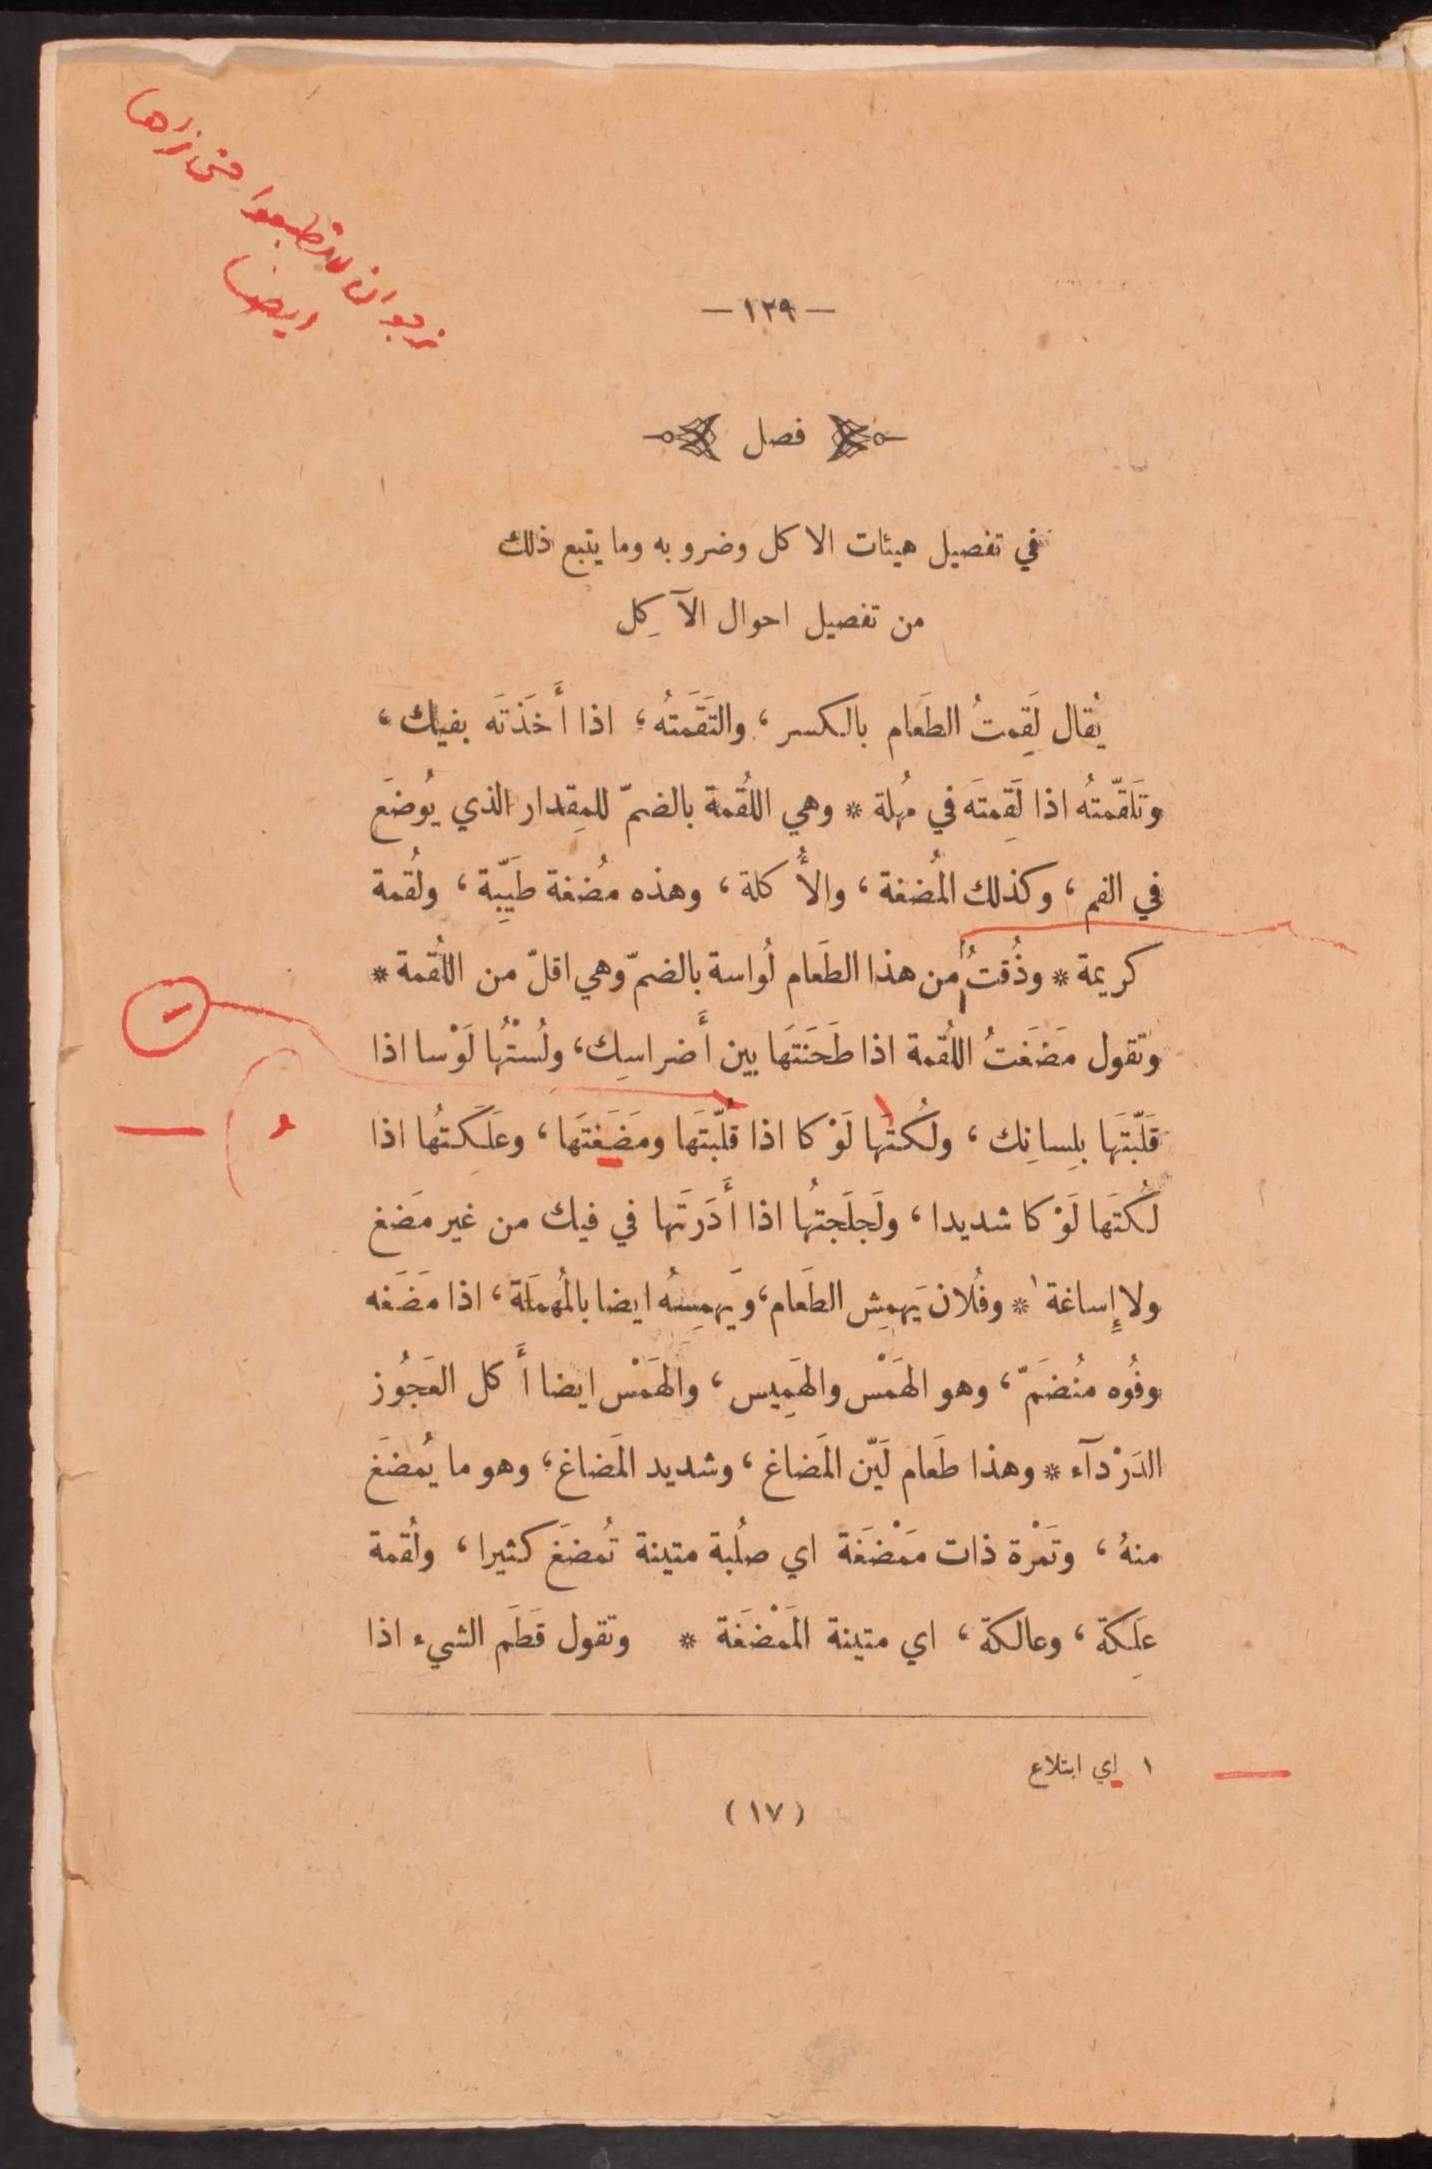 نرجو ان لا تطبعوا حتى نراها
ايضا
— ١٢٩ —
فصل
في تفصيل هيئات الاكل وضروبه وما يتبع ذلك
من تفصيل احوال الآكِل
يُقال لَقِمتُ الطَعَام بالكسر، والتَقَمتُه، اذا أَخَذتَه بفيك،
وتَلَقّمتُه اذا لَقِمتَه في مُهلة * وهي اللُقمة بالضمّ للمِقدار الذي يُوضَع
في الفم، وكذلك المُضغة، والأُكلة، وهذه مُضغة طَيِّبة، ولُقمة
كريمة * وذُقتُ من هذا الطَعَام لُواسة بالضمّ وهي اقلّ من اللُقمة *
وتقول مَضَغتُ اللُقمة اذا طَحَنتَها بين أَضراسِك، ولُسْتُها لَوْسا اذا
قَلَبّتَها بلِسانِك، ولُكتَها لَوْكا اذا قُلَبّتَها ومَضَغتَها، وعَلَكتُها اذا
لُكتَها لَوْكا شديدا، ولَجلَجتُها اذا أَدَرتَها في فيك من غير مَضغ
ولا إِساغة١ * وفُلان يَهمِش الطَعَام، ويَهمِسُه ايضا بالمُهمَلَة، اذا مَضَغه
وفُوه مُنضَمّ، وهو الهَمْس والهَمِيس، والهَمْس ايضا أَكل العَجُوز
الدَرْدآء * وهذا طَعَام لَيّن المَضاغ، وشديد المَضاغ، وهو ما يُمضَغ
منهُ، وتَمْرة ذات مَمْضَغَة اي صلُبة متينة تُمضَغ كثيرا، ولُقمة
عَلِكة، وعالكة، اي متينة المَمْضَغَة * وتقول قَطَم الشيء اذا
١ اي ابتلاع
(١٧)